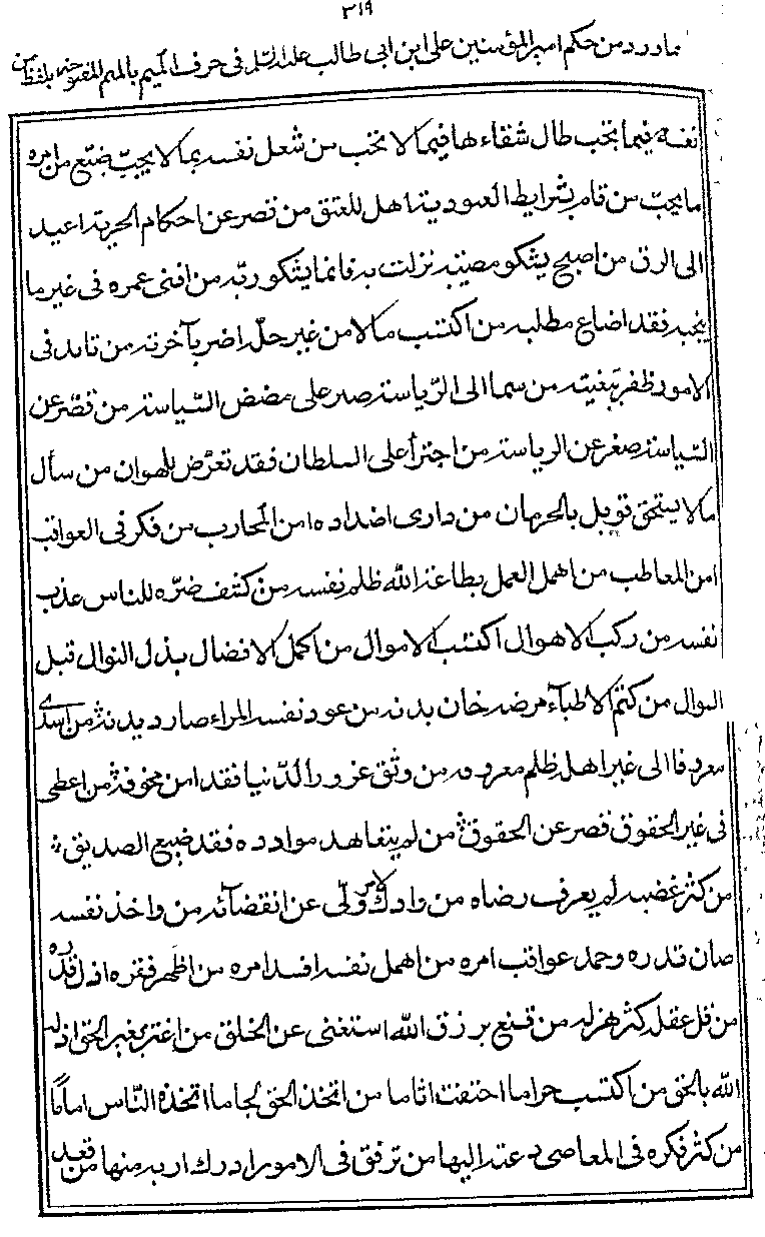 ٣١٩
مما ورد من حكم امير المؤمنين على ابن ابى طالب عليه السلام فى حرف الميم بالميم المفتوحة بلفظ من
نفسه فيما يحب طال شقاءها فيما لا تحب من شغل نفسه بما لا يجب ضيع من امره
ما يجب من قام بشرايط العبودية اهل للعتق من قصر عن احكام الحرية اعيد
الى الرق من اصبح يشكو مصيبة نزلت به فانما يشكو ربه من افنى عمره فى غير ما
ينجيه فقد اضاع مطلبه من اكتسب مالا من غير حلّ اضر بآخرته من تايد فى
الامور ظفر ببغيته من سما الى الرّياسة صبر على مضض السّياسة من قصّر عن
السّياسة صغر عن الرياسة من اجترأ على السلطان فقد تعرّض للهوان من سأل
مالا يستحق قوبل بالحرمان من دارى اضداده امن المحارب من فكر فى العواقب
امن المعاطب من اهمل العمل بطاعة الله ظلم نفسه من كشف ضرّه للناس عذب
نفسه من ركب الاهوال اكتسب الاموال من اكمل الافضال بذل النوال قبل
السوال من كتم الاطبآء مرضه خان بدنه من عود نفسه المراء صار ديدنه من اسدى
معروفا الى غير اهله ظلم معروفه من وثق بغرور الدّنيا فقد امن مخوفه من اعطى
فى غير الحقوق قصر عن الحقوق من لم يتعاهد موادده فقد ضيع الصديق
من كثر غضبه لم يعرف رضاه من وادك لامر ولّى عن انقضآئه من واخذ نفسه
صان قدره وحمد عواقب امره من اهمل نفسه افسد امره من اظهر فقره اذل قدره
من قل عقله كثر هزله من قنع برزق الله استغنى عن الخلق من اغتر بغير الحق اذله
الله بالحق من اكتسب حراما احتقب اثاما من اتخذ الحق لجاما اتخذه النّاس اماما
من كثر فكره فى المعاصى دعته اليها من ترفق فى الامور ادرك اربه منها من قعد